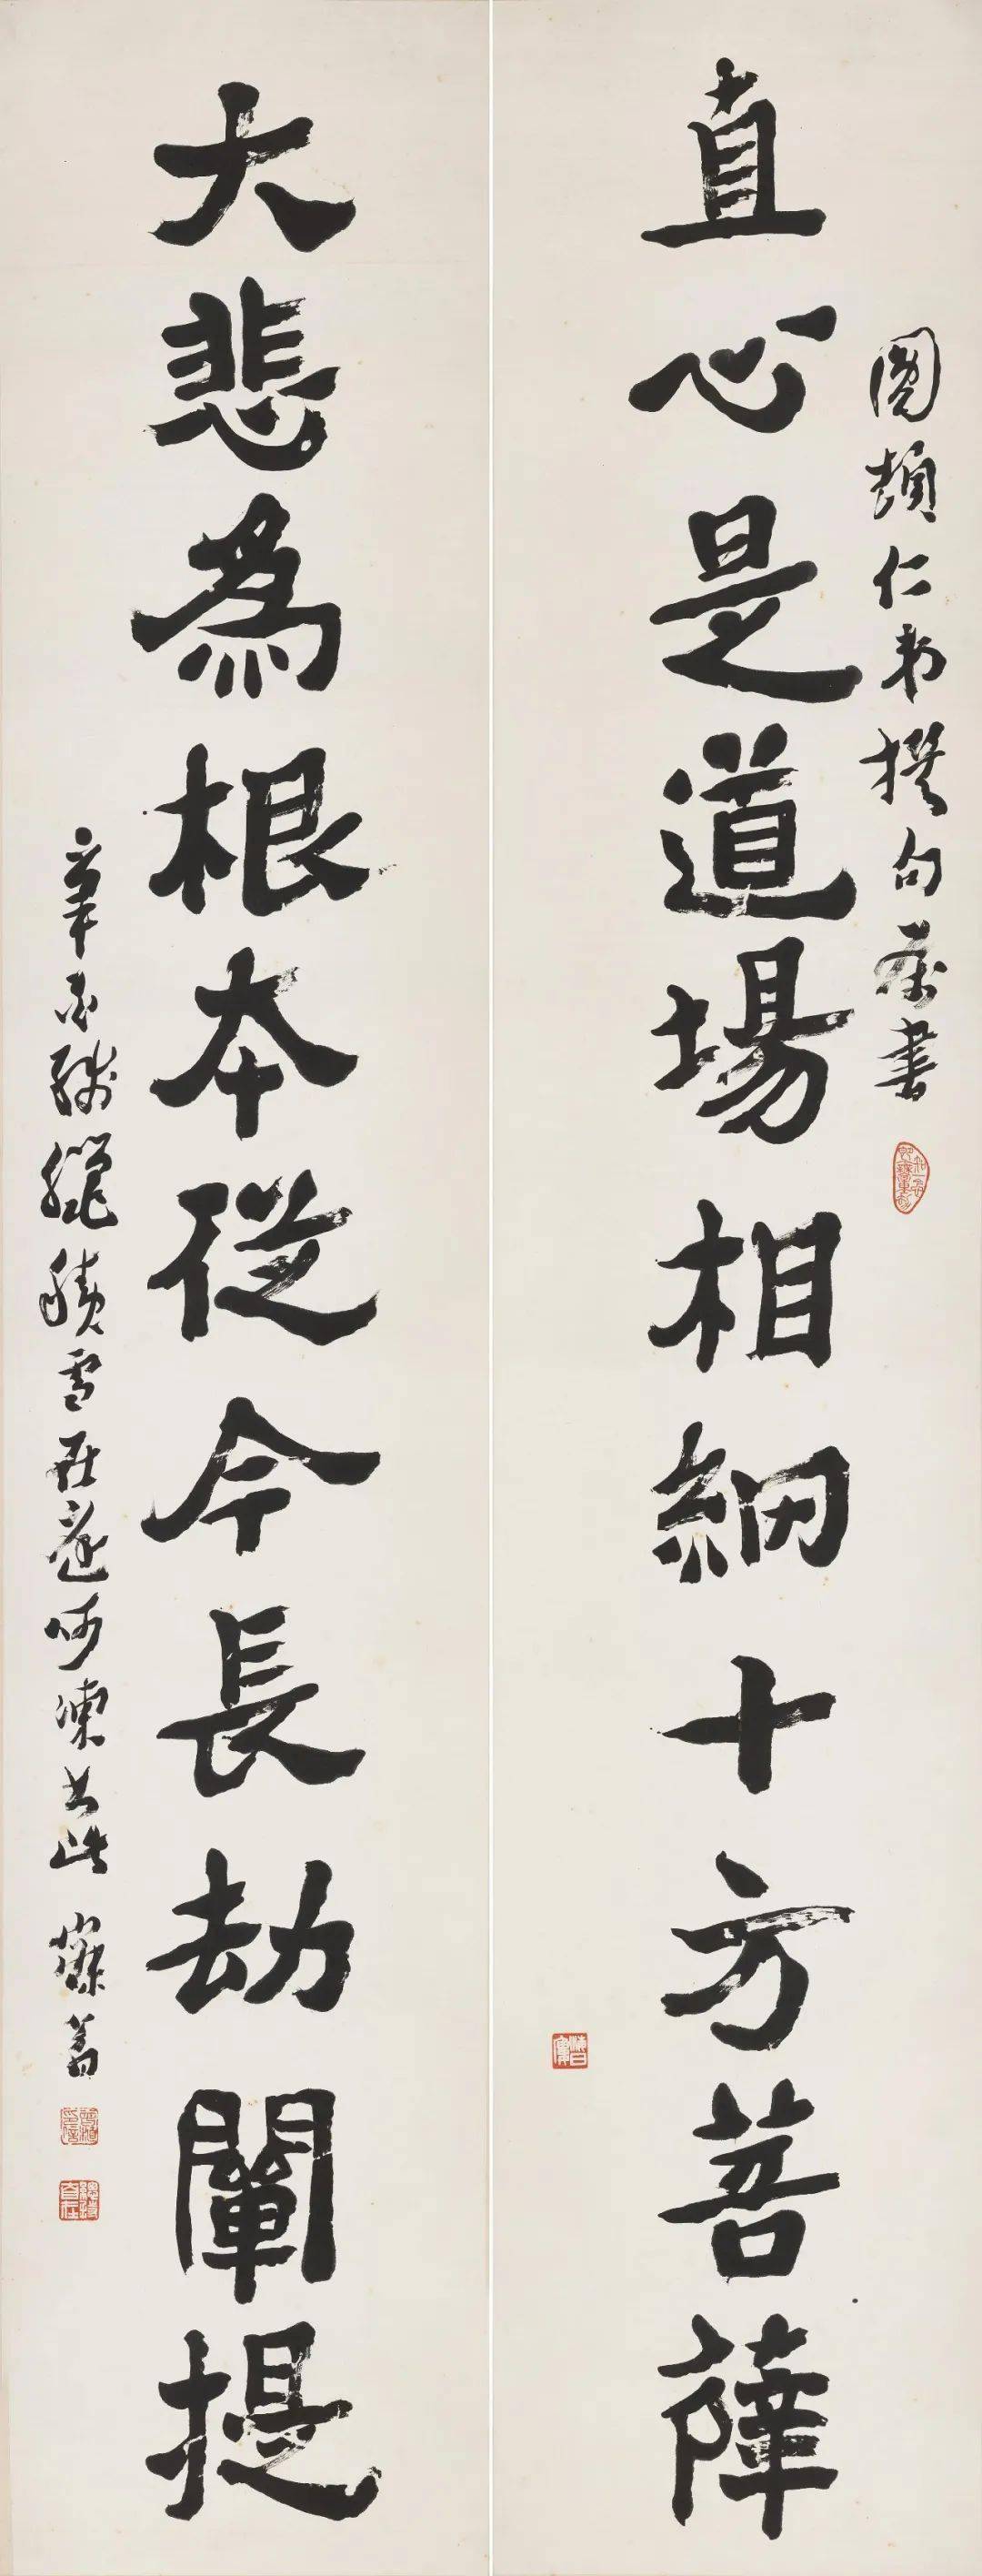 圓頓仁弟撰句屬書
直心是道場相細十方菩薩
大悲為根本從今長劫闡提
辛殘臘積雪在庭呵凍書此